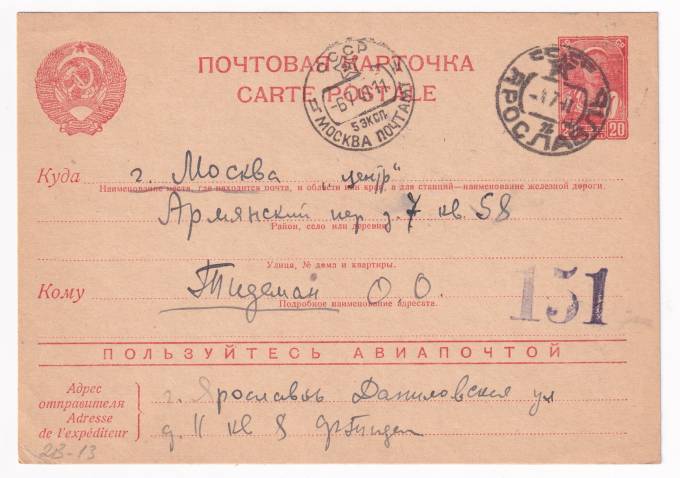 ПОЧТОВАЯ КАРТОЧКА
CARTE POSTALE
СССР
МОСКВА ПОЧТАМТ
5 ЭКСП.
ЯРОСЛАВЛЬ
20
Куда
г. Москва „центр“
Наименование места, где находится почта, и области или края, а для станций—наименование железной дороги.
Армянский пер д. 7 кв. 58
Район, село или деревня
Улица, № дома и квартиры.
Кому
Тидеман О. О.
Подробное наименование адресата.
151
ПОЛЬЗУЙТЕСЬ АВИАПОЧТОЙ
Адрес
отправителя
Adresse
de l'expéditeur
г. Ярославль Даниловская ул
д. 11 кв 8
2В-13